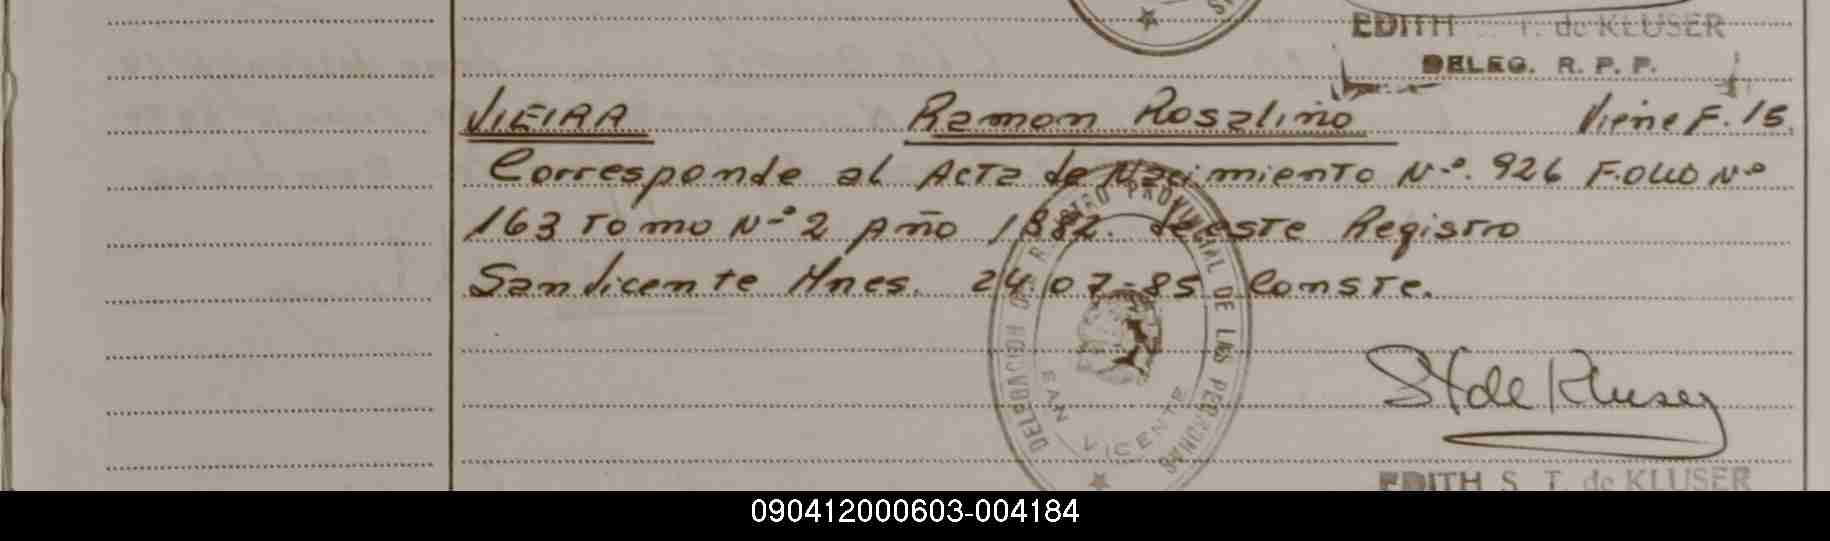 EDITH S. T. de KLUSER
DELEG. R. P. P.
VIEIRA Ramon Rosalino Viene F. 15.
Corresponde al Acta de Nacimiento N.º 926 Folio Nº
163 Tomo Nº 2 Año 1882. de este Registro
San Vicente Mnes. 24.07-85 Conste.
DELEGACION DE REGISTRO PROVINCIAL DE LAS PERSONAS
SAN VICENTE
STde Kluser
EDITH S. T. de KLUSER
090412000603-004184